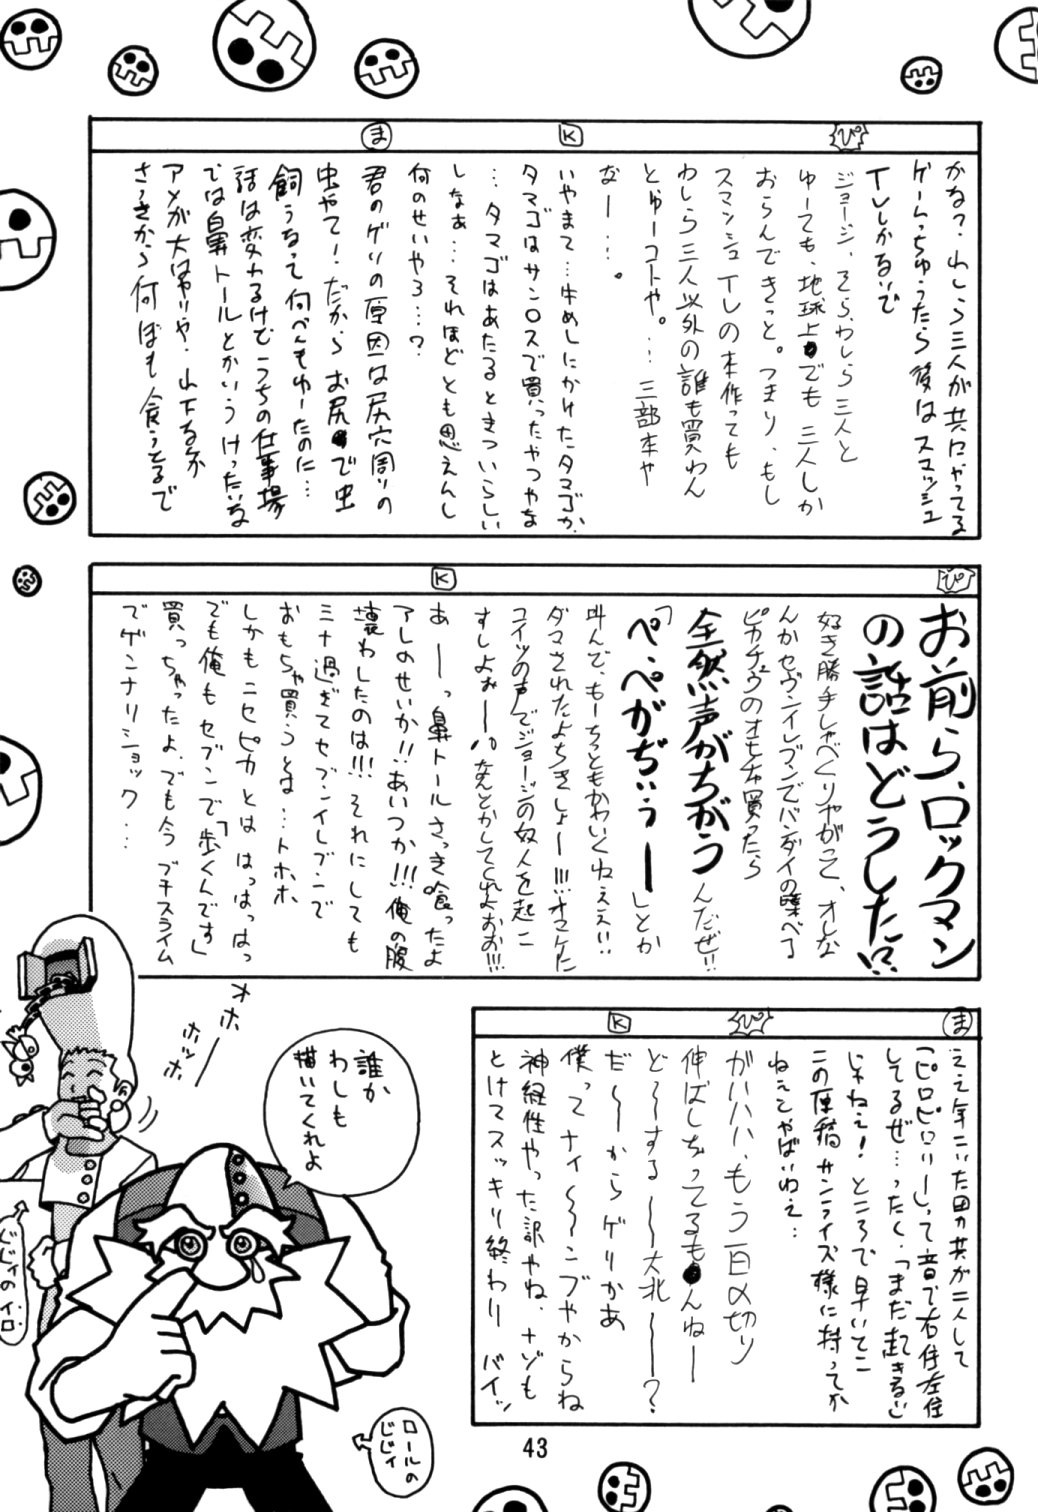 ぴ
かな?わしら三人が共にやってる
ゲームっちゅうたら後はスマッシュ
TVしかないで
ジョージ、そら、わしら三人と
ゆーても、地球上でも三人しか
おらんできっと。つまり、もし
スマッシュTVの本作っても
わしら三人以外の誰も買わん
とゆーコトや。…三部本や
なー…。
K
いやまて…牛めしにかけたタマゴか、
タマゴはサンロスで買ったやつやな
…タマゴはあたるときついらしい
しなぁ…それほどとも思えんし
何のせいやろ…?
ま
君のゲリの原因は尻穴周りの
虫やて!だから、お尻で虫
飼うなって何べんもゆーたのに…
話は変わるけどうちの仕事場
では鼻トールとかいうけったいな
アメが大はやりや。山下るか
さっきから何ぼも食うてるで
ぴ
お前ら、ロックマン
の話はどうした!?
好き勝手しゃべくりやがって、オレな
んかセヴンイレブンでバンダイの喋べる
ピカチュウのオモチャ買ったら
全然声がちがう
んだぜ!!
「ぺ・ぺがぢぃぅー」とか
叫んで、もーちっともかわいくねぇえ!!
ダマされたよちきしょー!!!オマケに
コイツの声でジョージの奴人を起こ
すしよぉー!!なんとかしてくれよおお!!!
K
あーっ鼻トールさっき食ったよ
アレのせいか!!あいつか!!!俺の腹
壊わしたのは!!!それにしても
ミナ過ぎてセブンイレブンで
おもちゃ買うとは…トホホ
しかもニセピカとははっはっはっ
でも俺もセブンで「歩くんです」
買っちゃったよ、でも今プチスライム
でゲンナリショック…
ま
ええ年こいた田力共が二人して
「ピロピロリー」って音で右往左往
してるぜ…ったく、「まだ起きるな」
じゃねえ!ところで早いてこ
この原稿サンライズ様に持ってか
ねえとやばいわえ…
ぴ
がハハハ、もう一日〆切り
伸ばしちってるもんねー
ど〜〜する〜〜大北ー〜?
K
だ〜〜からゲリかあ
僕ってナイ〜〜ンブやからね
神経性やった訳やね、ナゾも
とけてスッキリ終わり バイッ
オホーホッホ
誰か
わしも
描いてくれよ
じじィのイロ
ロールの
じじィ
43